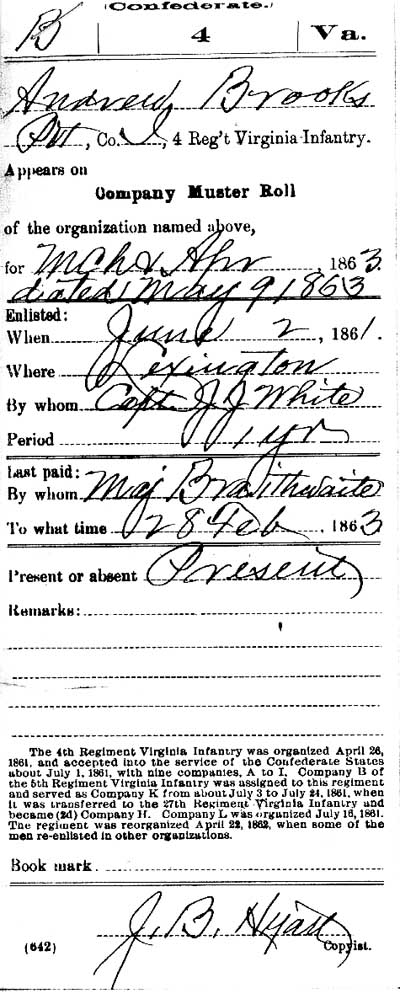 (Confederate.)
B | 4 | Va.
Andrew Brooks
Pvt, Co. I, 4 Reg't Virginia Infantry.
Appears on
Company Muster Roll
of the organization named above,
for Mch & Apr, 1863.
dated May 9, 1863
Enlisted:
When June 2, 1861.
Where Lexington
By whom Capt J J White
Period 1 yr
Last paid:
By whom Maj Braithwaite
To what time 28 Feb, 1863
Present or absent Present
Remarks:
The 4th Regiment Virginia Infantry was organized April 26,
1861, and accepted into the service of the Confederate States
about July 1, 1861, with nine companies, A to I. Company B of
the 5th Regiment Virginia Infantry was assigned to this regiment
and served as Company K from about July 3 to July 24, 1861, when
it was transferred to the 27th Regiment Virginia Infantry and
became (2d) Company H. Company L was organized July 16, 1861.
The regiment was reorganized April 22, 1862, when some of the
men re-enlisted in other organizations.
Book mark.
J. B. Hyatt
(642) Copyist.